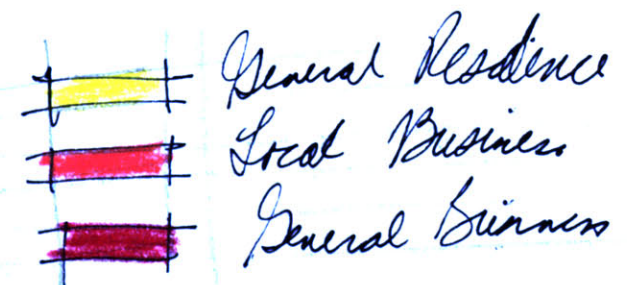 General Residence
Local Business
General Business